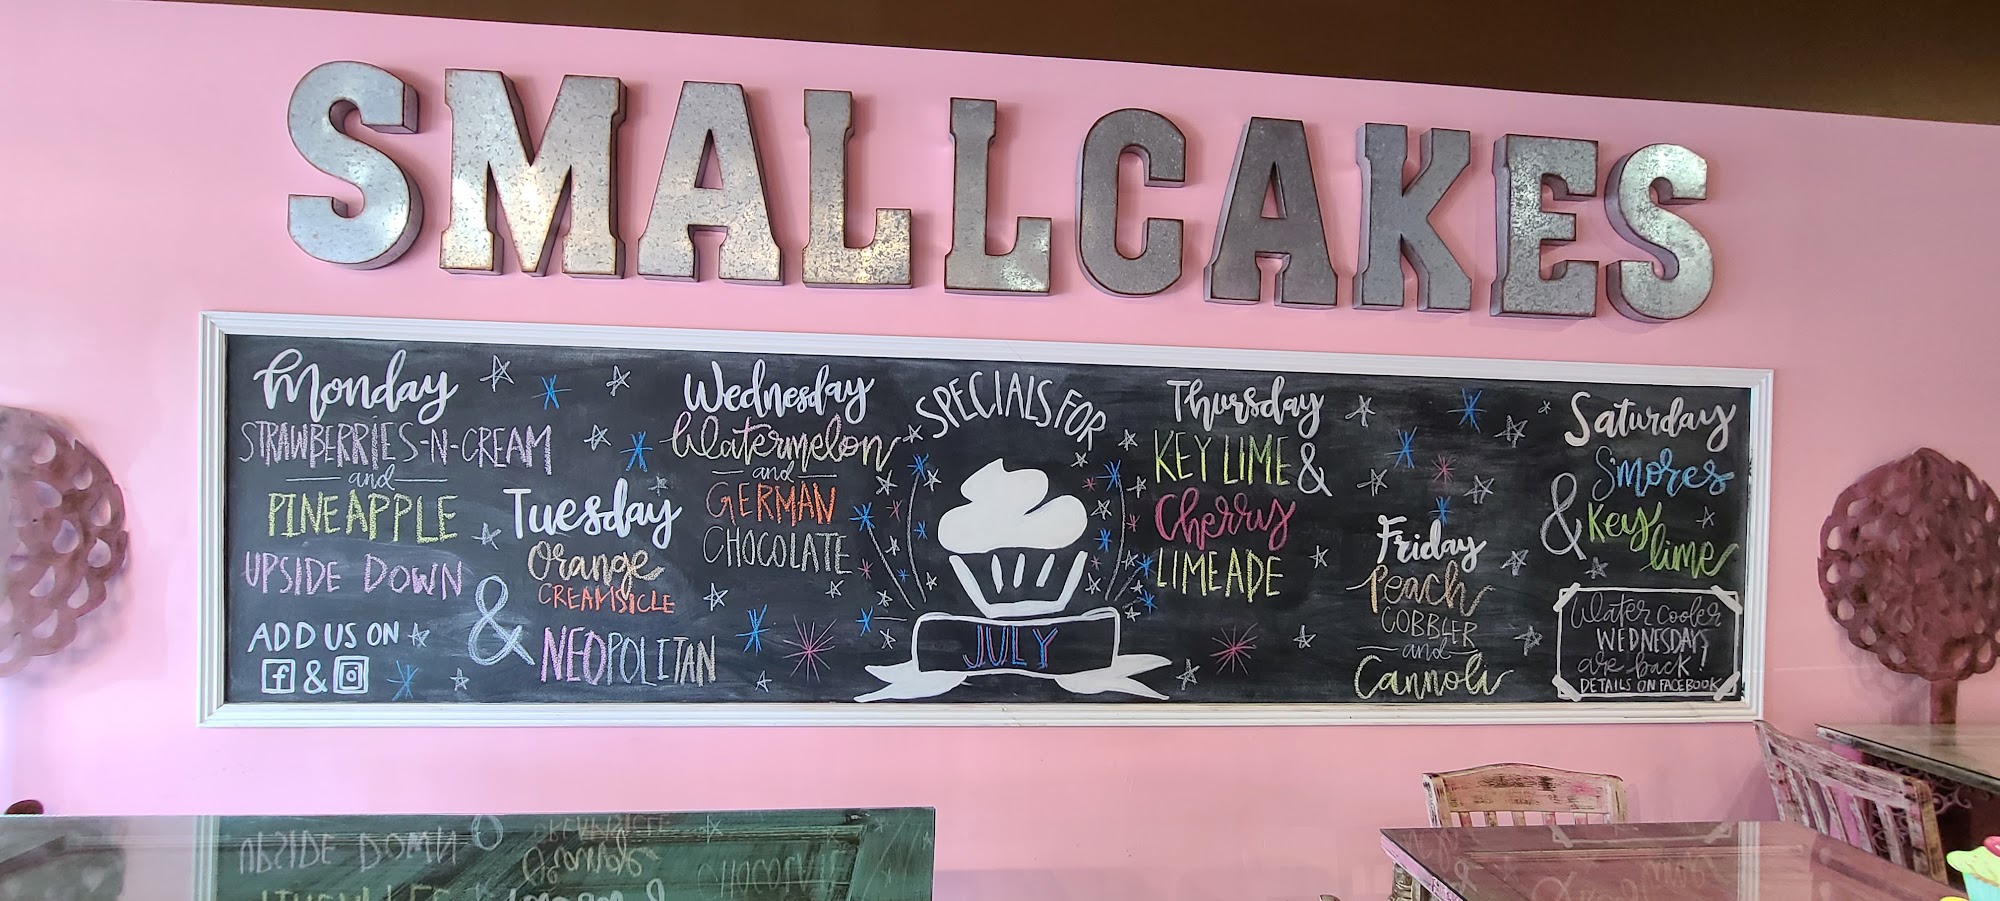 SMALLCAKES
Monday
STRAWBERRIES-N-CREAM
and
PINEAPPLE
UPSIDE DOWN
ADD US ON
f & 
Tuesday
Orange
CREAMSICLE
& NEOPOLITAN
Wednesday
Watermelon
and
GERMAN
CHOCOLATE
SPECIALS FOR
JULY
Thursday
KEY LIME &
Cherry
LIMEADE
Friday
Peach
COBBLER
and
Cannoli
Saturday
S'mores
& Key
lime
Water cooler
WEDNESDAYS
are back
DETAILS ON FACEBOOK